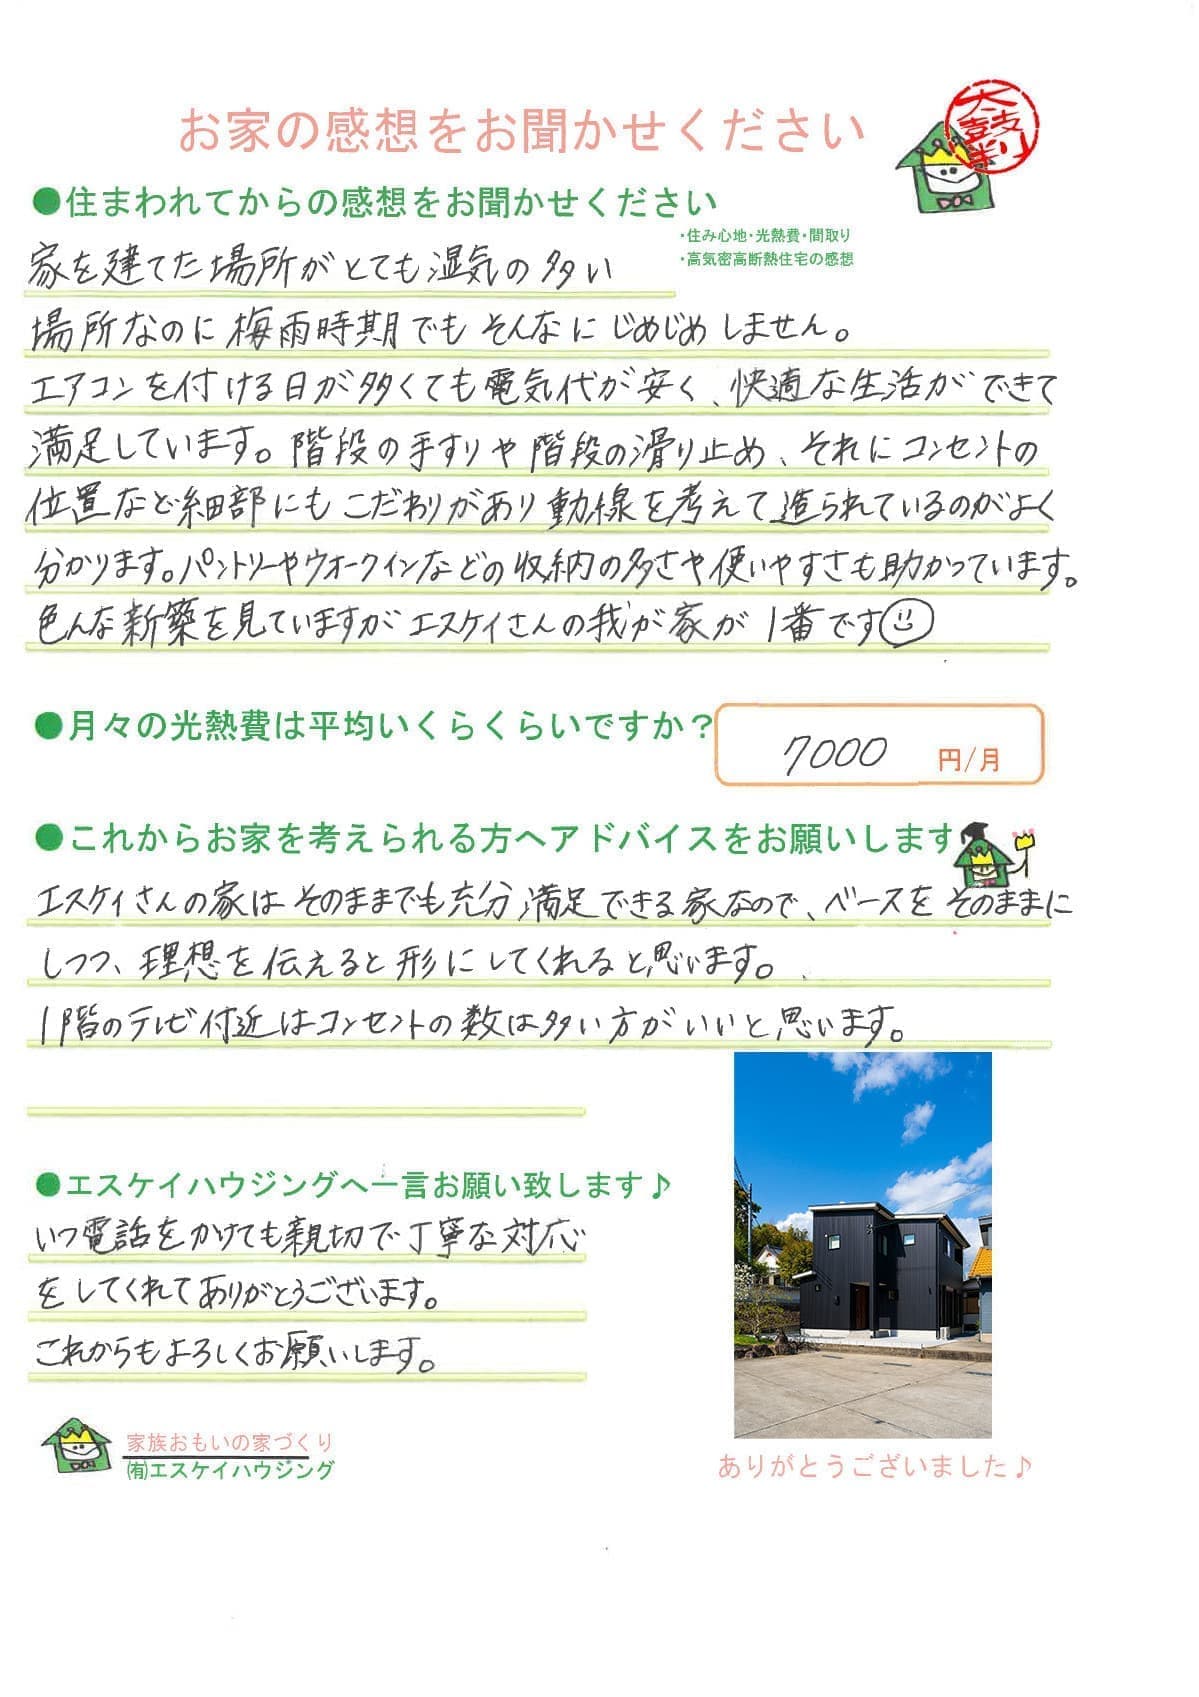 お家の感想をお聞かせください
太鼓判
●住まわれてからの感想をお聞かせください
・住み心地・光熱費・間取り
・高気密高断熱住宅の感想
家を建てた場所がとても湿気の多い
場所なのに梅雨時期でもそんなにじめじめしません。
エアコンを付ける日が多くても電気代が安く、快適な生活ができて
満足しています。階段の手すりや階段の滑り止め、それにコンセントの
位置など細部にもこだわりがあり動線を考えて造られているのがよく
分かります。パントリーやウォークインなどの収納の多さや使いやすさも助かっています。
色んな新築を見ていますがエスケイさんの我が家が1番です
●月々の光熱費は平均いくらくらいですか？
7000 円/月
●これからお家を考えられる方へアドバイスをお願いします
エスケイさんの家はそのままでも充分満足できる家なので、ベースをそのままに
しつつ、理想を伝えると形にしてくれると思います。
1階のテレビ付近はコンセントの数は多い方がいいと思います。
●エスケイハウジングへ一言お願い致します♪
いつ電話をかけても親切で丁寧な対応
をしてくれてありがとうございます。
これからもよろしくお願いします。
家族おもいの家づくり
㈲エスケイハウジング
ありがとうございました♪